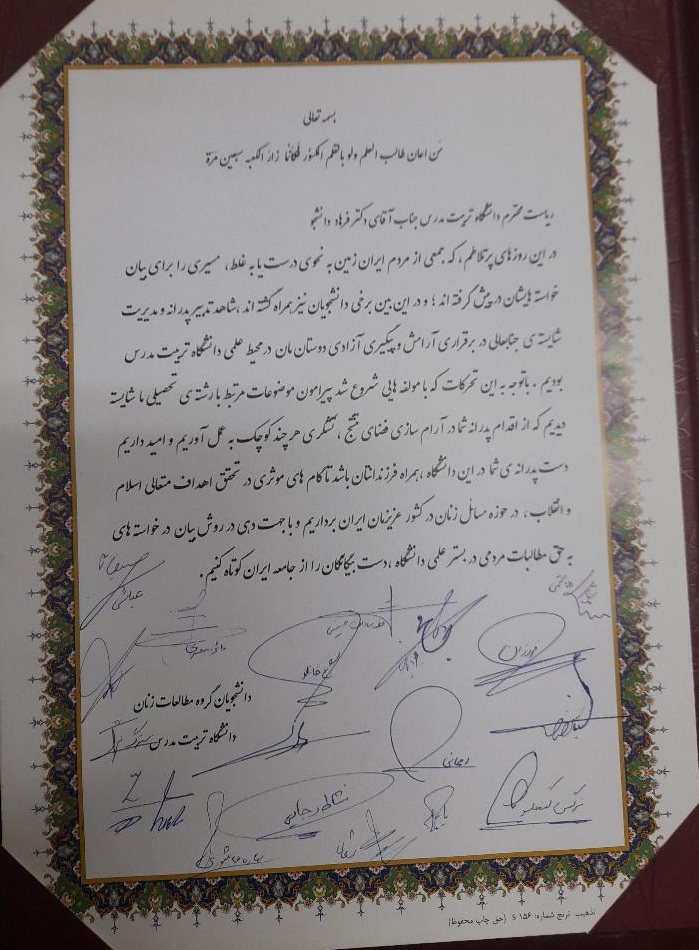 بسمه تعالی
مَن اعان طالب العلم ولو بالقلم المکسور فکانّما زار الکعبه سبعین مَرّة
ریاست محترم دانشگاه تربیت مدرس جناب آقای دکتر فرهاد دانشجو
در این روزهای پرتلاطم ، که جمعی از مردم ایران زمین به نحوی درست یا به غلط ، مسیری را برای بیان
خواسته هایشان در پیش گرفته اند ؛ و در این بین برخی دانشجویان نیز همراه گشته اند ، شاهد تدبیر پدرانه و مدیریت
شایسته ی جنابعالی در برقراری آرامش و پیگیری آزادی دوستان مان در محیط علمی دانشگاه تربیت مدرس
بودیم . باتوجه به این تحرکات که با مولفه هایی شروع شد پیرامون موضوعات مرتبط با رشته ی تحصیلی ما شایسته
دیدیم که از اقدام پدرانه شما در آرام سازی فضای متشنج ، تشکری هر چند کوچک به عمل آوریم و امید داریم
دست پدرانه ی شما در این دانشگاه ، همراه فرزندانتان باشد تا گام های موثری در تحقق اهداف متعالی اسلام
و انقلاب ، در حوزه مسائل زنان در کشور عزیزمان ایران برداریم و با جهت دهی در روش بیان در خواسته های
به حق مطالبات مردمی در بستر علمی دانشگاه ، دست بیگانگان را از جامعه ایران کوتاه کنیم .
عباسی
دانشجویان گروه مطالعات زنان
دانشگاه تربیت مدرس
رحمانی
نرگس
تذهیب ترنج شماره: ۱۵۶ S (حق چاپ محفوظ)